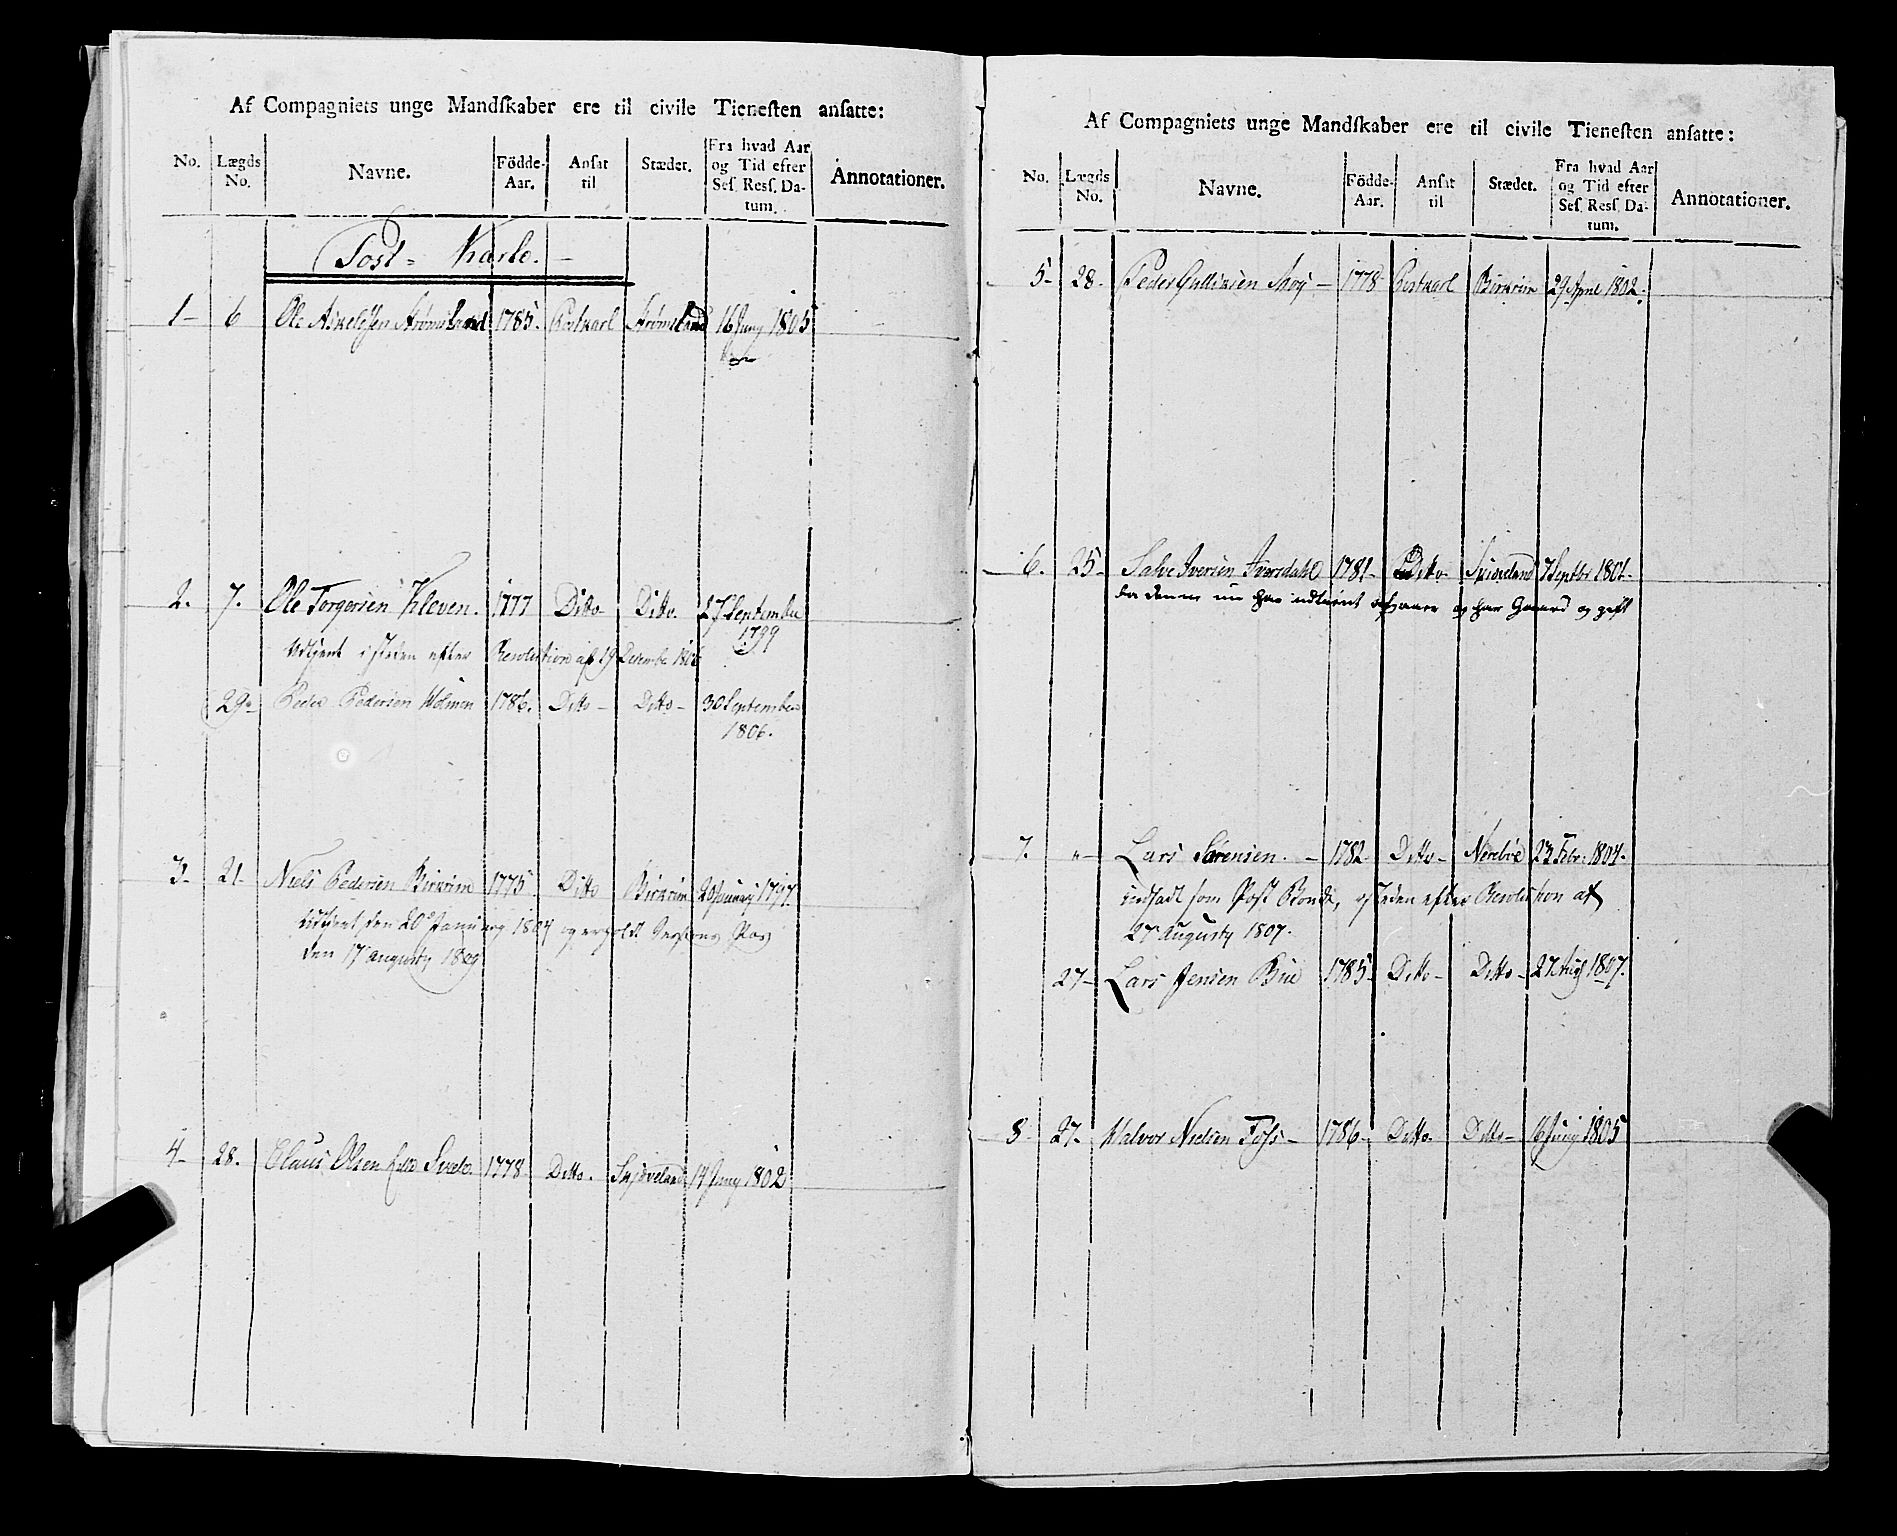 Af Compagniets unge Mandſkaber ere til civile Tieneſten anſatte:
No. Lægds No. Navne. Födde-Aar. Anſat til Stædet. Fra hvad Aar og Tid efter Seſ. Resſ. Datum. Annotationer.
Post = Karle. –
1 – 6 Ole Strømsland 1785. Postkarl Strømsland 16 Juny 1805
2. 7. Ole Torgersen Kleven. 1777 Ditto Ditto. 27 Septembr
1799
Udtjent i steden efter Resolution af 19 Decembr 1806
29. Peder Pedersen Holmen 1786. Ditto – Ditto – 30 September
1806.
3. 21. Niels Pedersen Birkrim 1775. Ditto Birkrim 20 January 1797.
Udtjent den 20 January 1804 og Sessions Pas
den 17 Augusty 1809
4 – 28. Claus Olsen 1778 Ditto. Skjøveland 14 Juny 1802
Af Compagniets unge Mandſkaber ere til civile Tieneſten anſatte:
No. Lægds No. Navne. Födde-Aar. Anſat til Stædet. Fra hvad Aar og Tid efter Seſ. Resſ. Datum. Annotationer.
5 – 28. Peder – 1778 Postkarl Birkrim 29 April 1802.
6. 25 – Salve Iversen Iversdahl 1781 – Ditto Septbr 1801.
da denne nu har udtient og har Gaard og gift
7. " – Lars Sørensen. – 1782 Ditto – Nerebøe 23 Febr. 1804.
indsadt som Post Bonde, isteden efter Resolution af
27 Augusty 1807.
27 – Lars Jensen Bue 1785 – Ditto – Ditto – 27. Aug 1807.
8 – 27. Halvor Nielsen Foss – 1786 – Ditto. Ditto – 16 Juny 1805